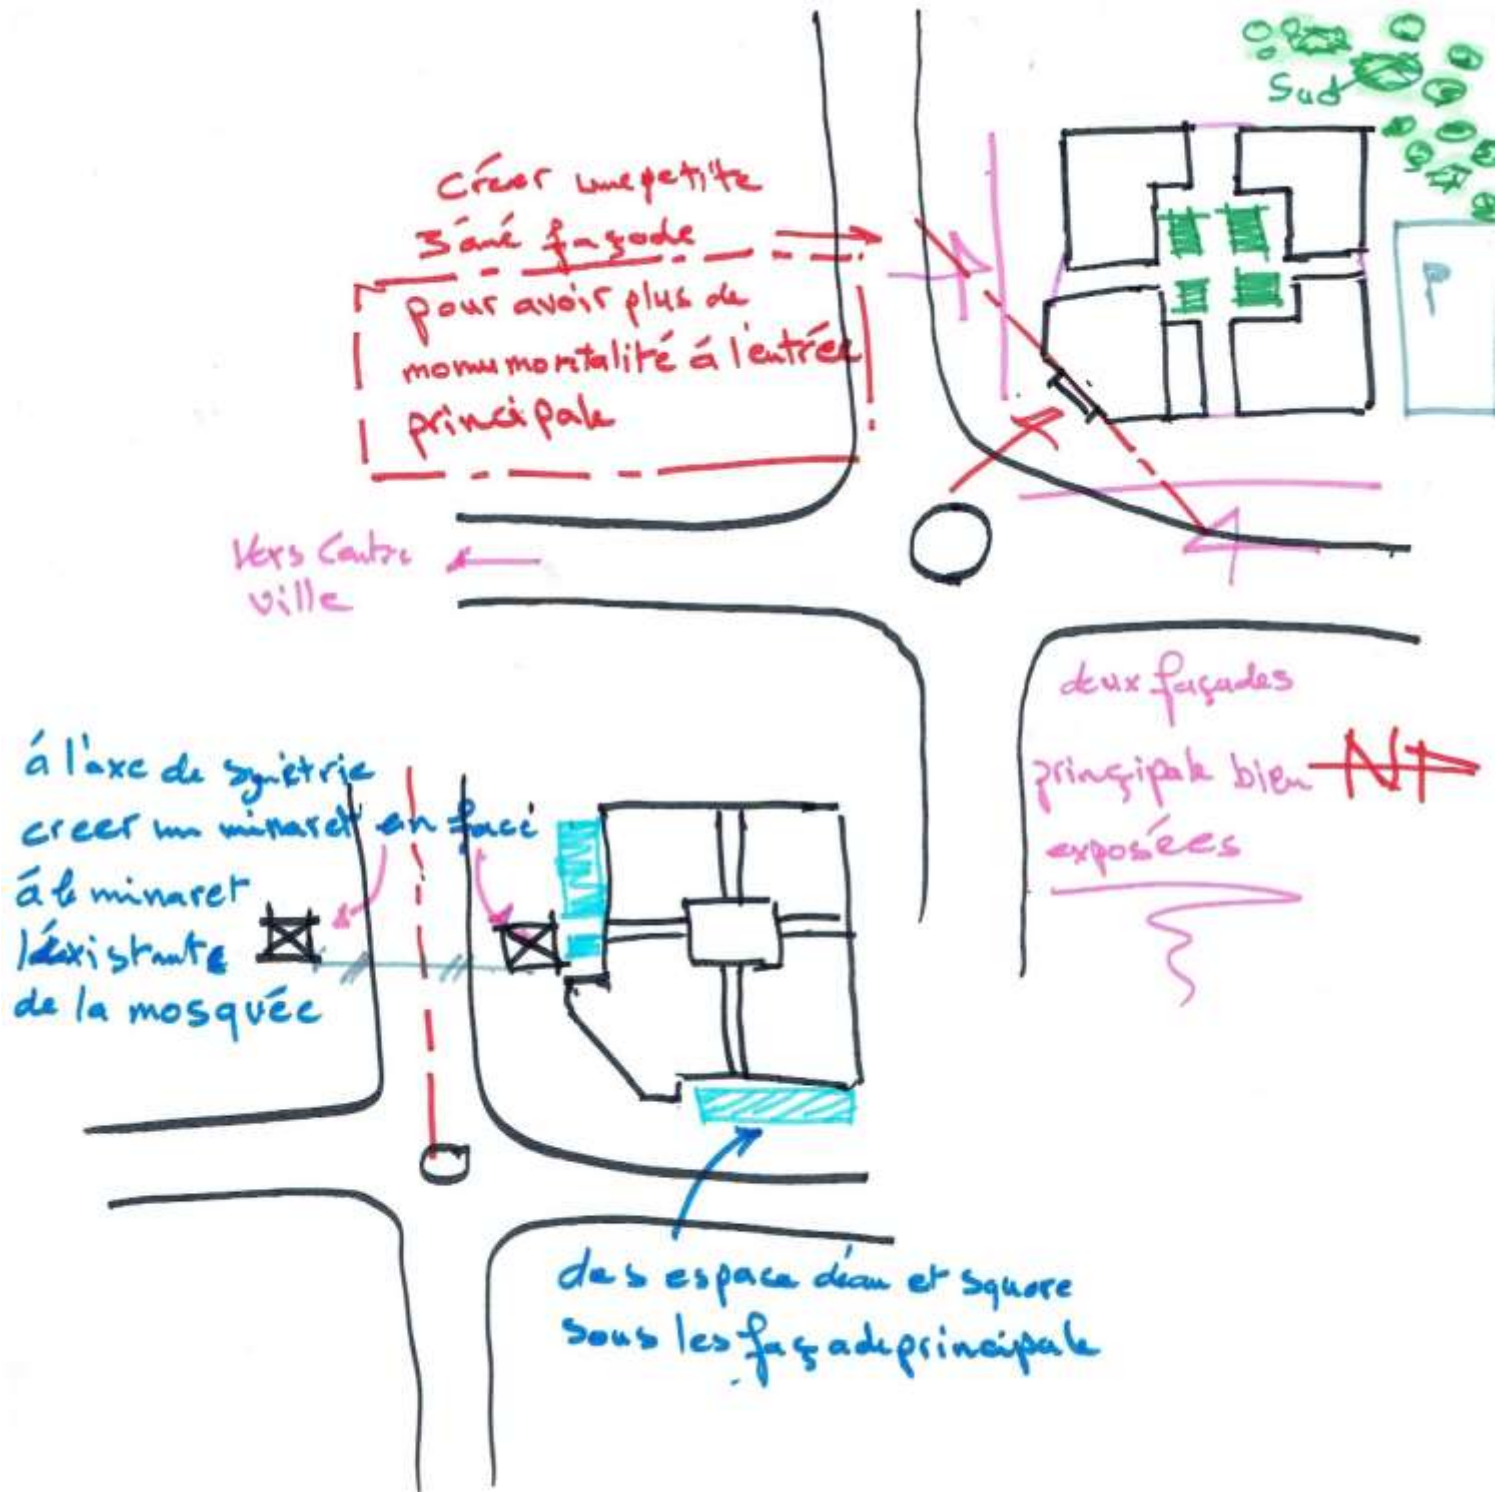 Sud
créer une petite
3éme façade
pour avoir plus de
monumontalité á l'entrée
principale
P
Vers Centre
ville
deux façades
principale bien
exposées
N
á l'axe de symétrie
creer un minaret en face
á le minaret
l'éxistante
de la mosquée
des espace d'eau et square
sous les façade principale